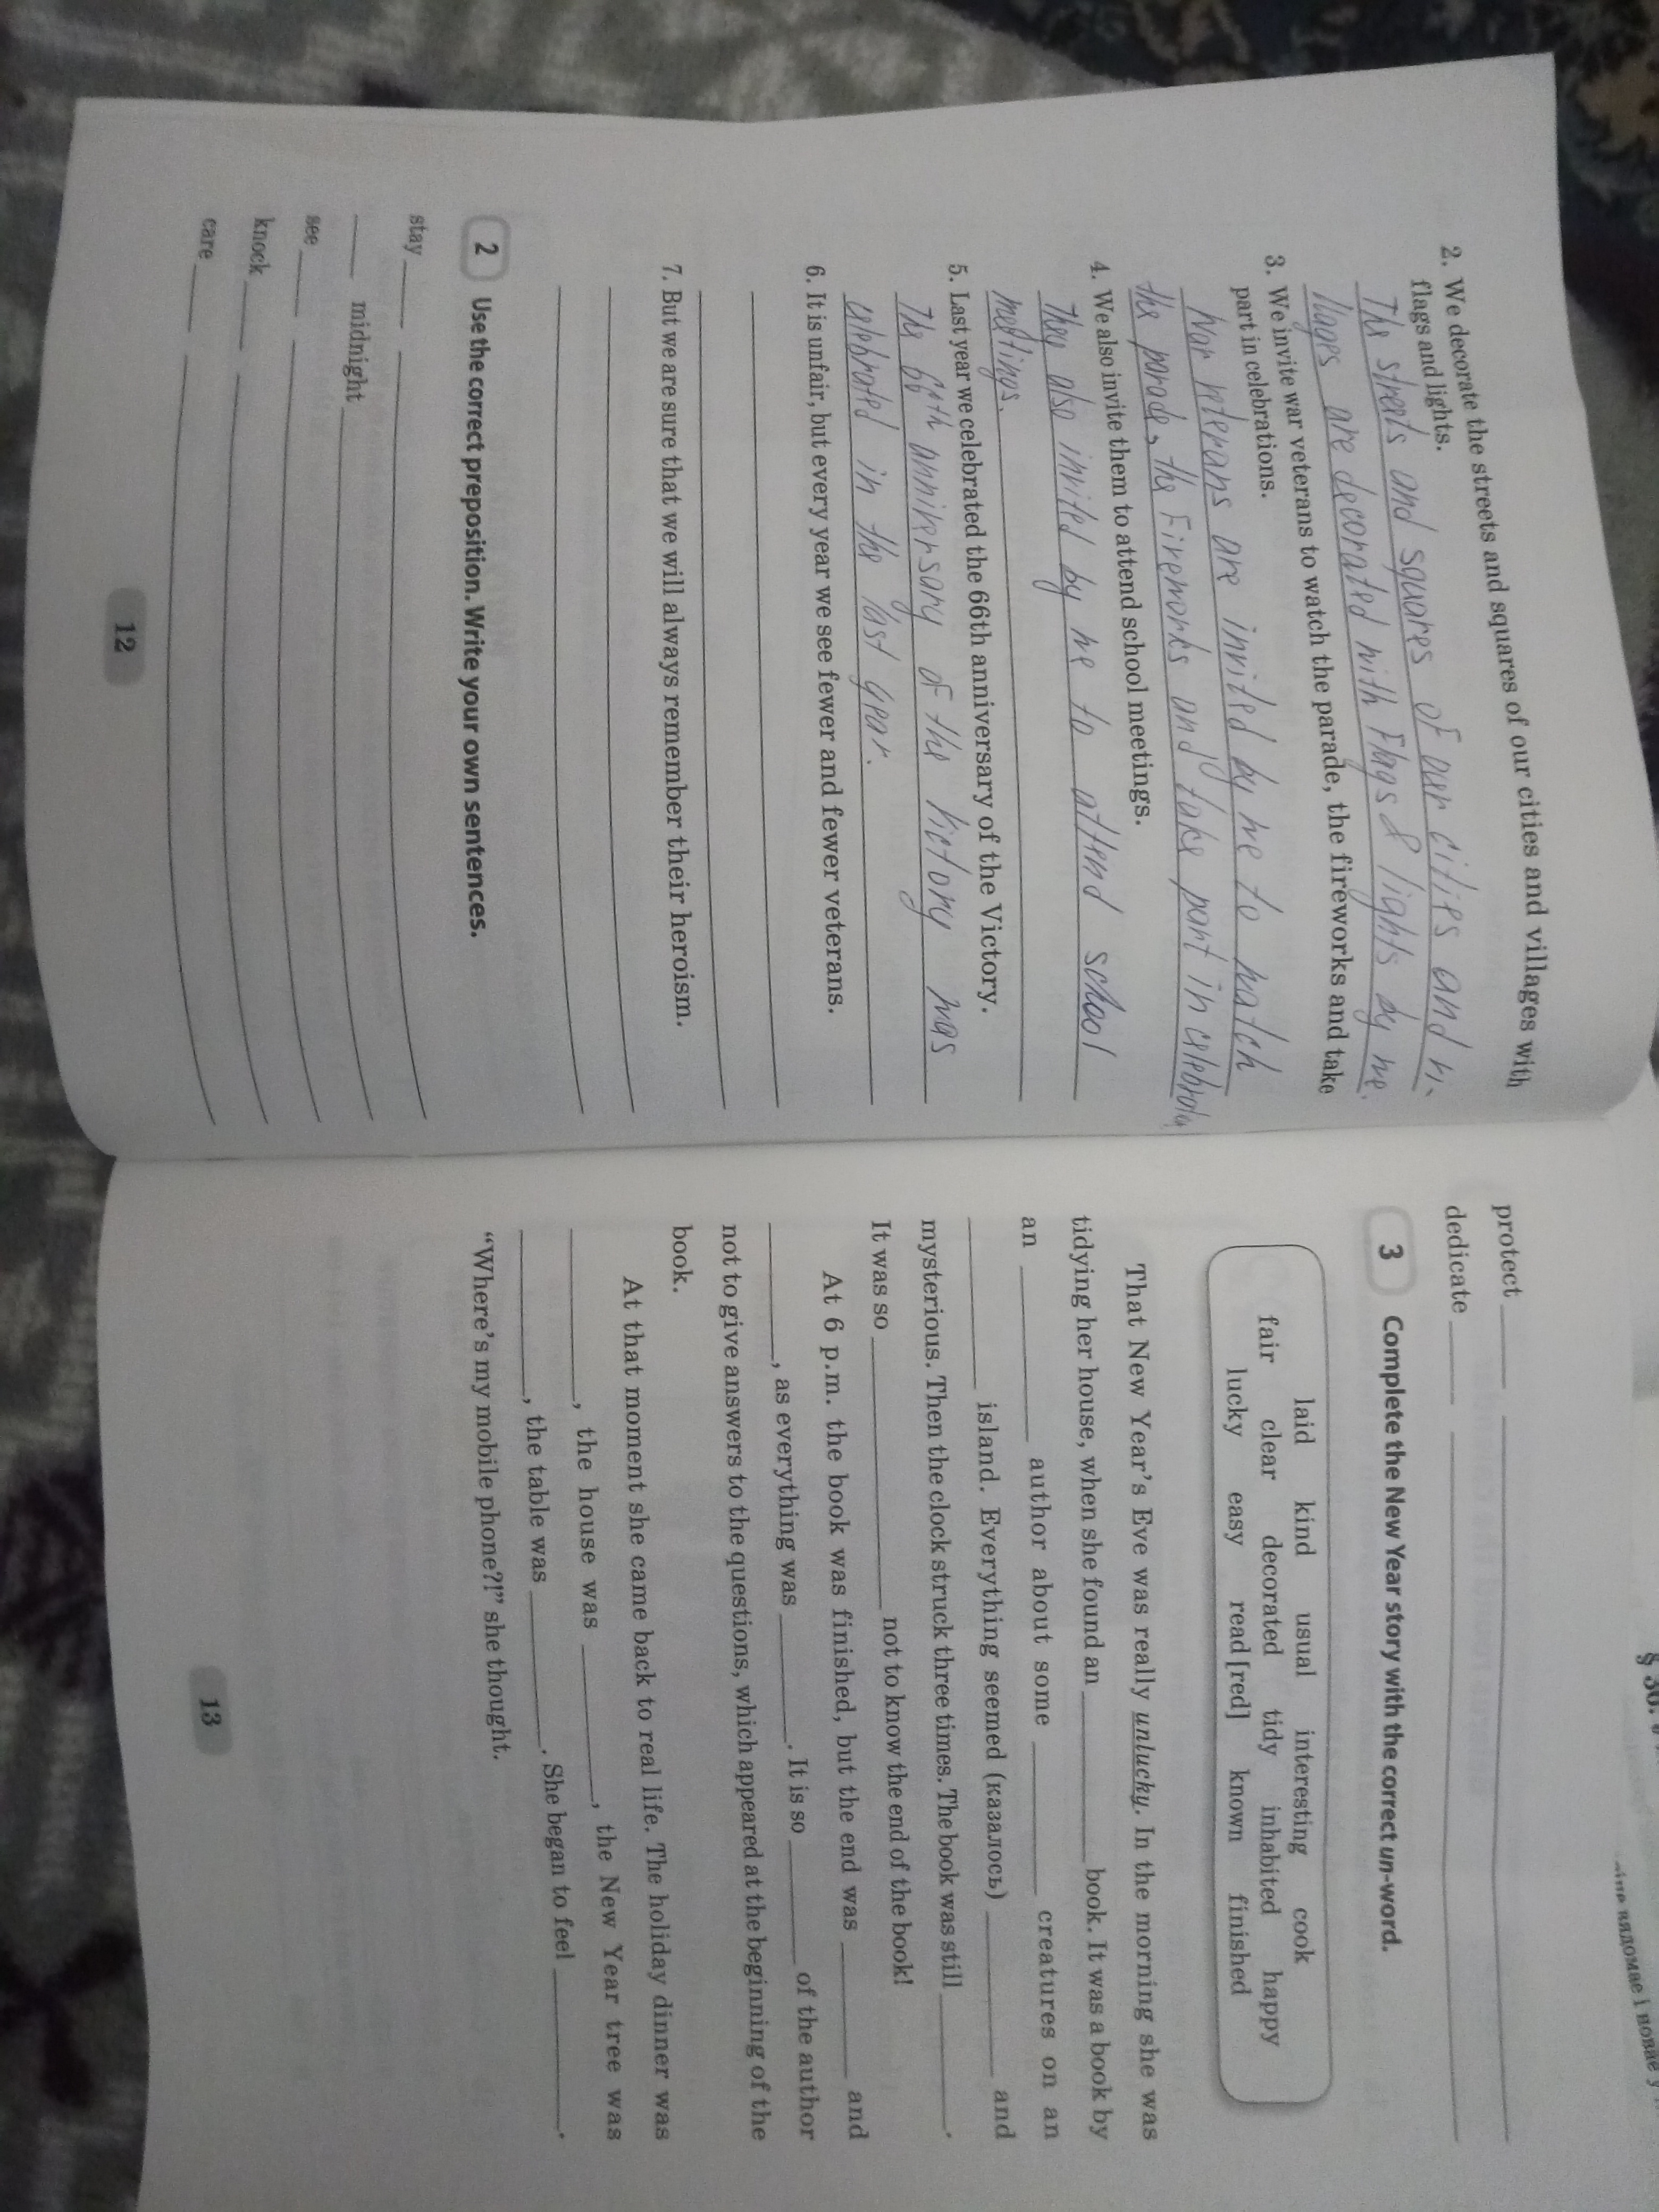 2. We decorate the streets and squares of our cities and villages with
flags and lights.
The streets and squares of our cities and vi-
llages are decorated with flags & lights by we.
3. We invite war veterans to watch the parade, the fireworks and take
part in celebrations.
War veterans are invited by we to watch
the parade, the fireworks and take part in
4. We also invite them to attend school meetings.
They also invited by we to attend school
meetings.
5. Last year we celebrated the 66th anniversary of the Victory.
The 66th anniversary of the victory was
celebrated in the last year.
6. It is unfair, but every year we see fewer and fewer veterans.
7. But we are sure that we will always remember their heroism.
2 Use the correct preposition. Write your own sentences.
stay
midnight
see
knock
care
12
protect
dedicate
3 Complete the New Year story with the correct un-word.
laid kind usual interesting cook
fair clear decorated tidy inhabited happy
lucky easy read [red] known finished
That New Year's Eve was really unlucky. In the morning she was
tidying her house, when she found an ________ book. It was a book by
an ________ author about some ________ creatures on an
________ island. Everything seemed (казалось) ________ and
mysterious. Then the clock struck three times. The book was still ________.
It was so ________ not to know the end of the book!
At 6 p.m. the book was finished, but the end was ________ and
________, as everything was ________. It is so ________ of the author
not to give answers to the questions, which appeared at the beginning of the
book.
At that moment she came back to real life. The holiday dinner was
________, the house was ________, the New Year tree was
________, the table was ________. She began to feel ________.
"Where's my mobile phone?!" she thought.
13
§ 30.
вядомае і новае у